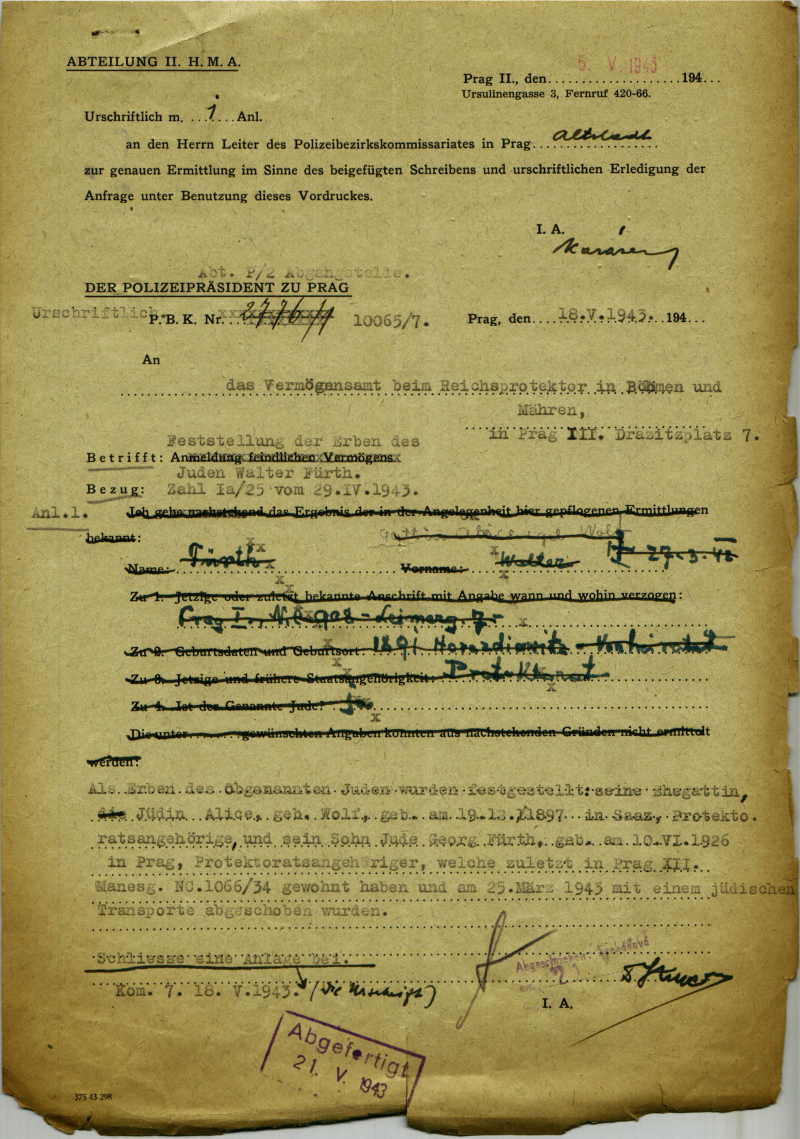 ABTEILUNG II. H. M. A.
5. V. 1943
Prag II., den....................194...
Ursulinengasse 3, Fernruf 420-66.
Urschriftlich m. ...1....Anl.
an den Herrn Leiter des Polizeibezirkskommissariates in Prag..Altstadt
zur genauen Ermittlung im Sinne des beigefügten Schreibens und urschriftlichen Erledigung der
Anfrage unter Benutzung dieses Vordruckes.
I. A.
Abt. P/2 Abgangstelle.
DER POLIZEIPRÄSIDENT ZU PRAG
Urschriftlich P. B. K. Nr... 10065/7. Prag, den....18.V.1943...194...
An
das Vermögensamt beim Reichsprotektor in Böhmen und
Mähren,
in Prag III. Drazitzplatz 7.
Feststellung der Erben des
Betrifft: Anmeldung feindlichen Vermögens
Juden Walter Fürth.
Bezug: Zahl Ia/25 vom 29.IV.1943.
Anl.1. Ich gebe nachstehend das Ergebnis der in der Angelegenheit hier gepflogenen Ermittlungen
bekannt:
Name: Fürth Vorname: Walter 27-3-42
Zu 1. Jetzige oder zuletzt bekannte Anschrift mit Angabe wann und wohin verzogen:
Prag I.,
Zu 2. Geburtsdaten und Geburtsort: 1891
Zu 3. Jetzige und frühere Staatsangehörigkeit:
Zu 4. Ist der Genannte Jude? ja
Die unter ........ gewünschten Angaben konnten aus nachstehenden Gründen nicht ermittelt
werden:
Als Erben des obgenannten Juden wurden festgestellt: seine Ehegattin,
die Jüdin Alice, geh. Wolf, geb. am 19.12.1897 in Saaz, Protekto.
ratsangehörige, und sein Sohn Jude Georg Fürth, geb. am 10.VI.1926
in Prag, Protektoratsangehöriger, welche zuletzt in Prag XII.
Manesg. NC.1066/34 gewohnt haben und am 25.März 1943 mit einem jüdischen
Transporte abgeschoben wurden.
Schliesse eine Anlage bei.
Kom. 7. 18. V.1943. (die Urschrift)
I. A.
Abgefertigt
21. V. 1943
375 43 298